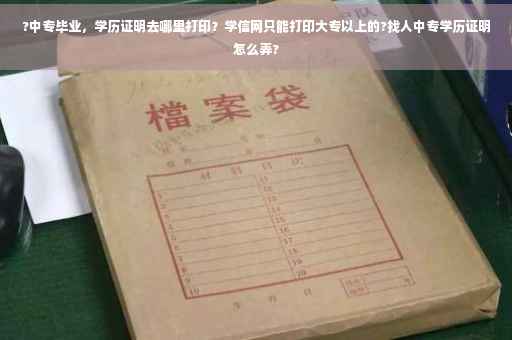 ?中专毕业，学历证明去哪里打印？学信网只能打印大专以上的?找人中专学历证明
怎么弄?
檔案袋
材料目次
1
2
3
4
5
6
7
8
9
10
11
12
13
14
15
16
17
18
19
20
年 月 日